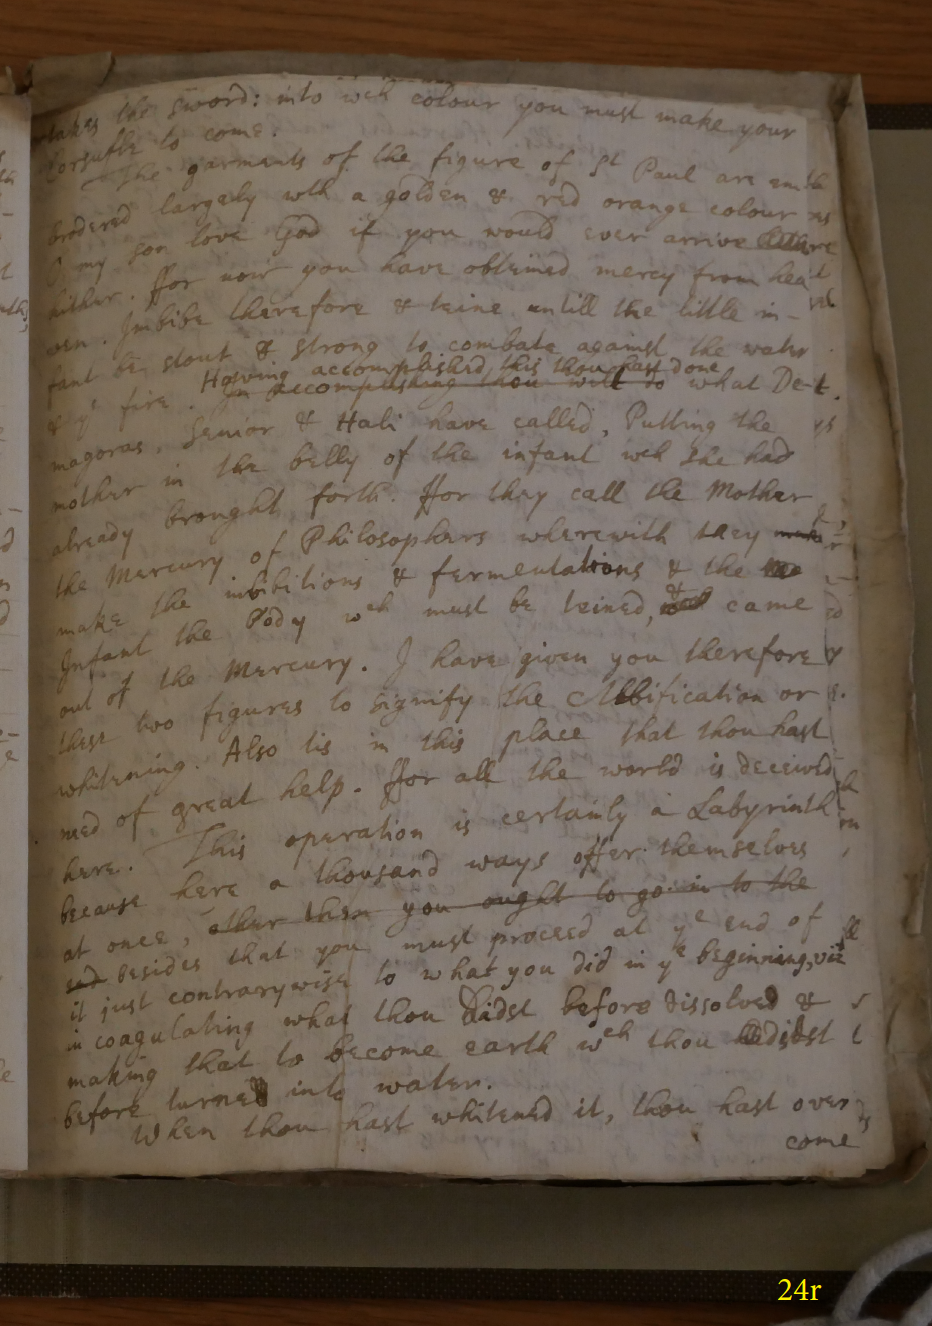 takes the sword: into wch colour you must make your
Corsufle to come.
The garments of the figure of St Paul are em
brodered largely wth a golden & red orange colour
O my son love God if you would ever arrive
hither. ffor now you have obteined mercy from hea
ven. Imbibe therefore & teine untill the little in-
fant be stout & strong to combate against the water
Having accomplished this thou hast done
& ye fire. In accomplishing thou wilt do what De-
magoras, Senior & Hali have called, Putting the
mother in the belly of the infant wch she had
already brought forth. ffor they call the Mother
the Mercury of Philosophers wherewith they
make the inbibitions & fermentations & the
Infant the Body wch must be teined, & came
out of the Mercury. I have given you therefore
these two figures to signify the Albification or
whitening. Also tis in this place that thou hast
need of great help. ffor all the world is deceived
here. This operation is certainly a Labyrinth
because here a thousand ways offer themselves
at once, other then you ought to go in to the
besides that you must proceed at ye end of
it just contrarywise to what you did in ye beginning, viz
in coagulating what thou didst before dissolved &
making that to become earth wch thou didst
before turned into water.
When thou hast whitened it, thou hast over
come
24r